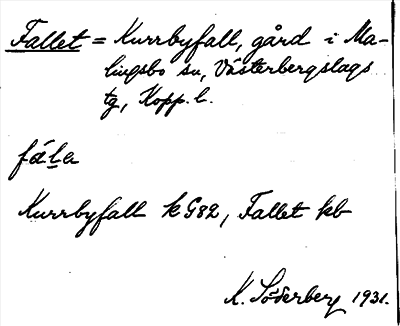 Fallet = Kurrbyfall, gård i Ma-
lingsbo sn, Västerbergslags
tg, Kopp. l.
fála
Kurrbyfall k G82, Fallet kb
K. Söderberg 1931.